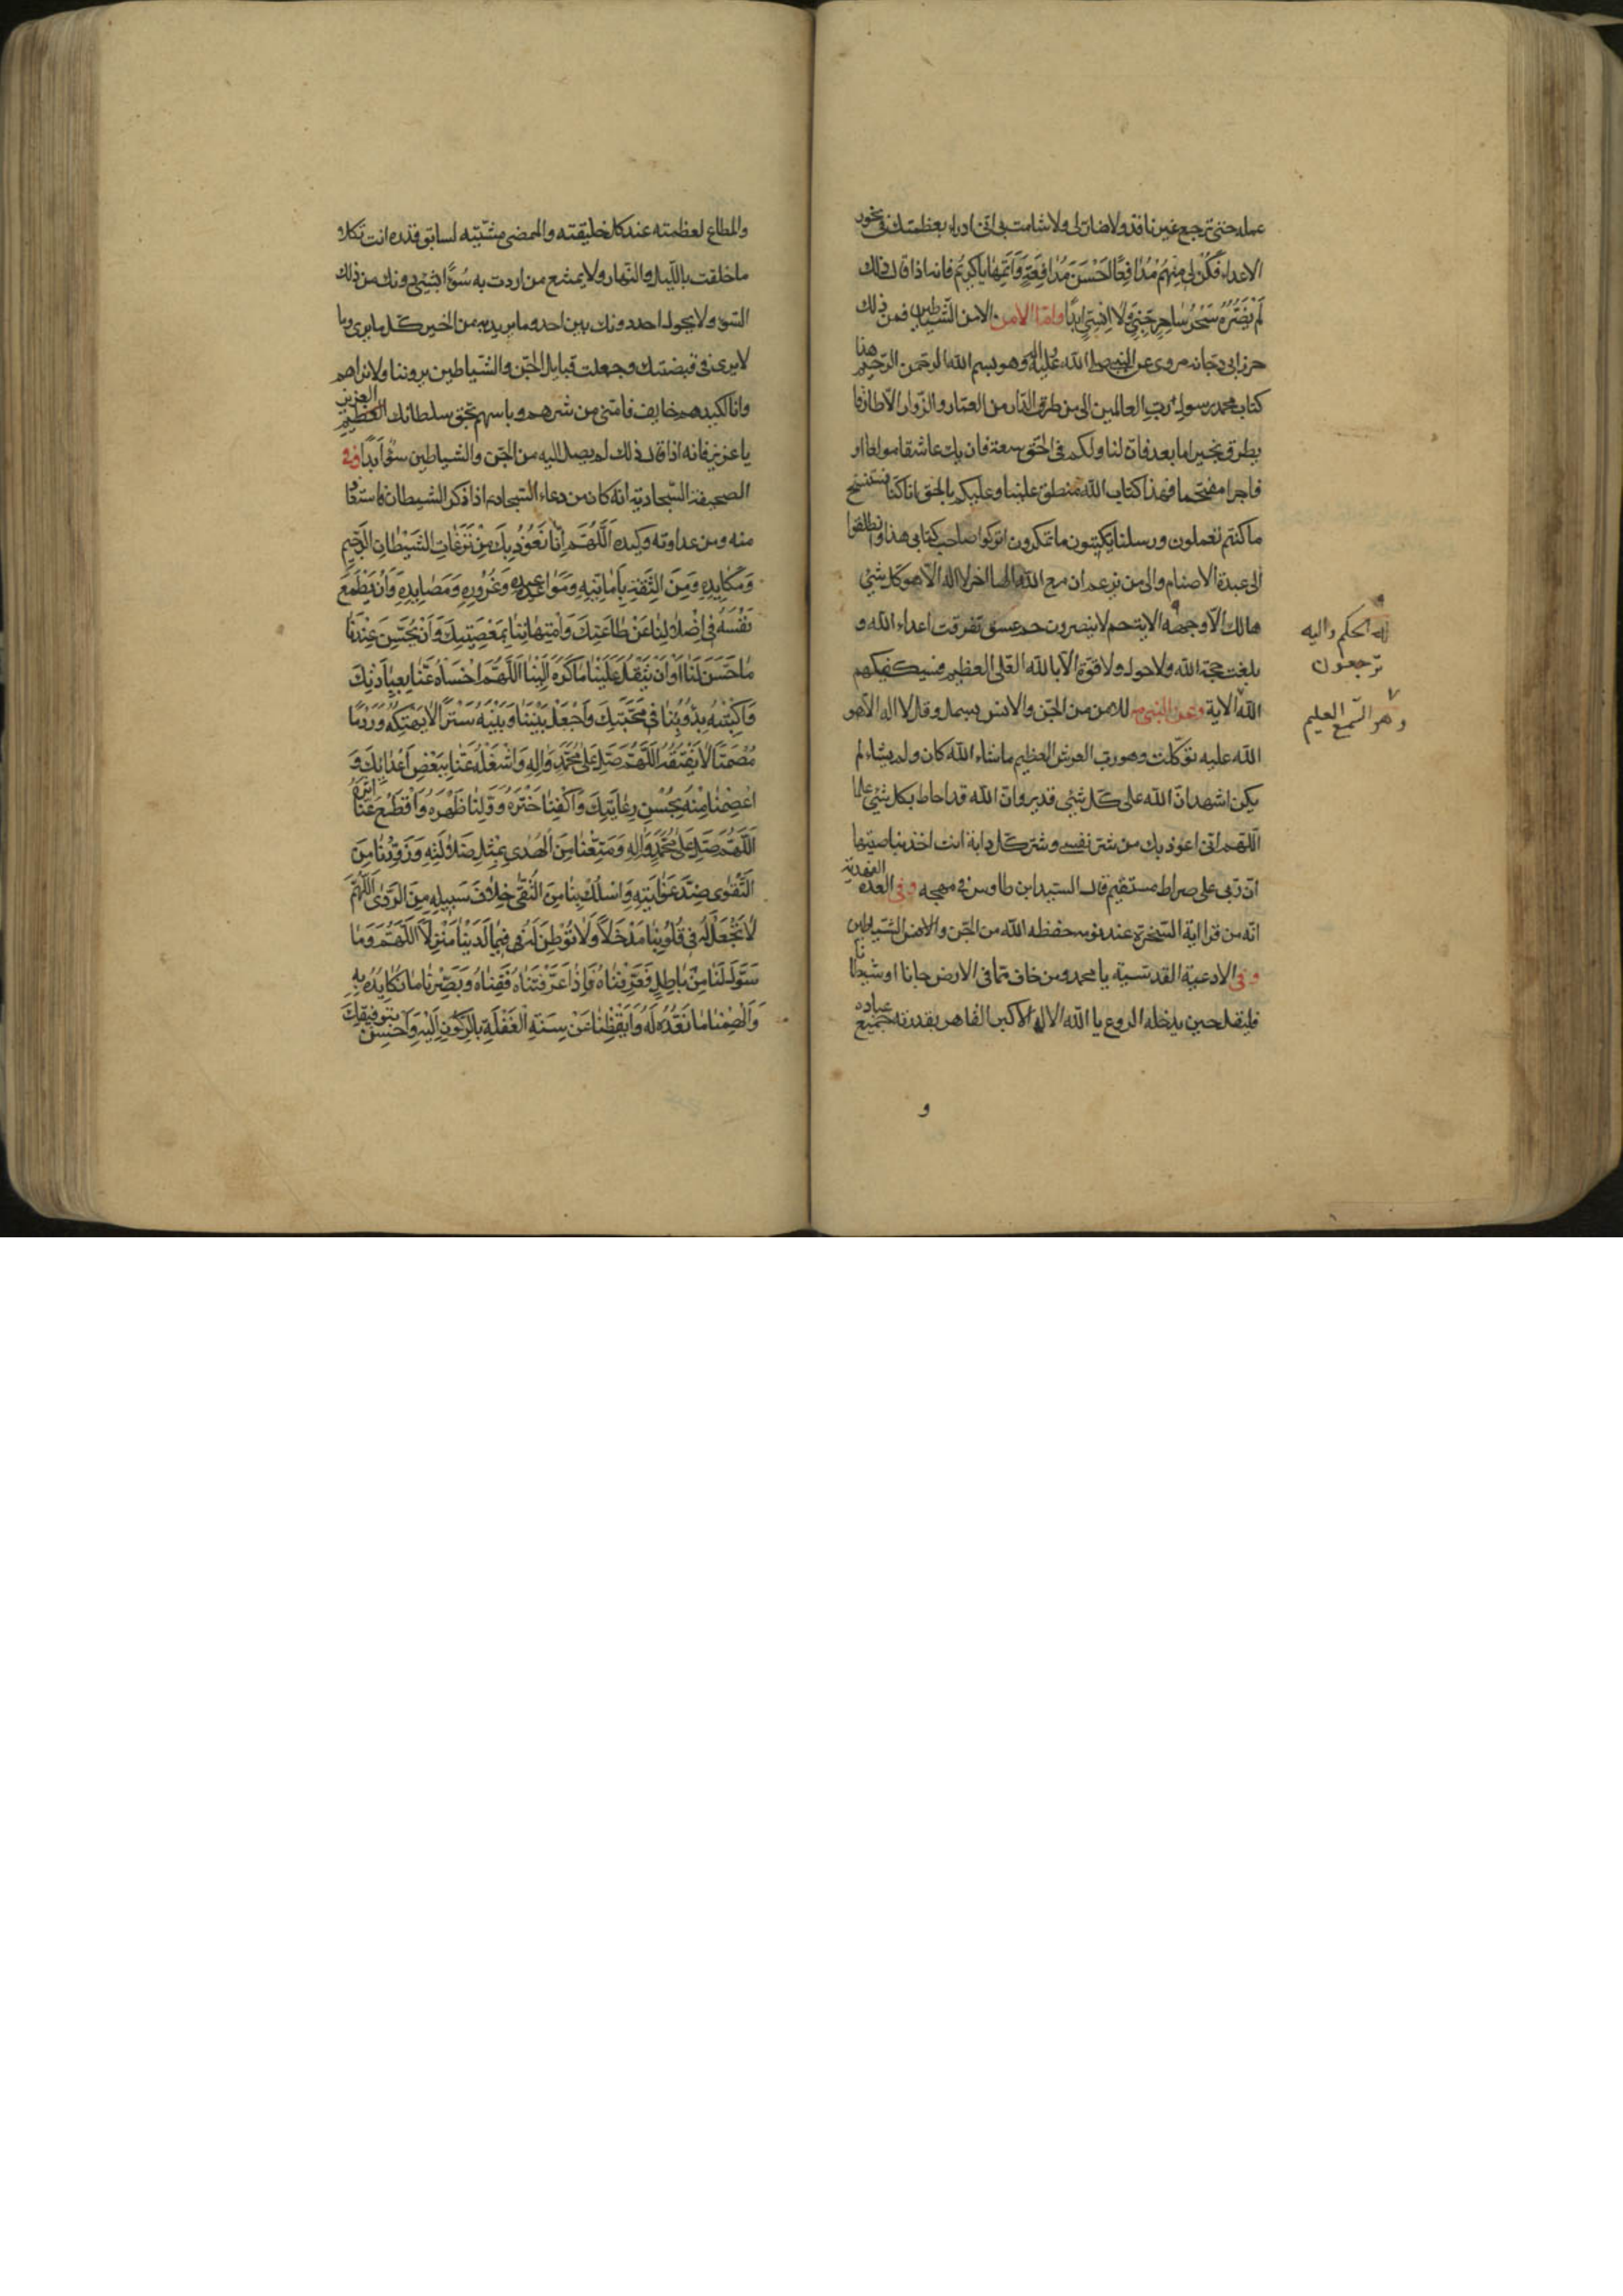 عمله حتى ترجع غير نافذ ولا ضار لى ولا شامت بى انى ادراء بعظمتك فى نحور
الاعداء فَكُنْ لِى مِنْهُمْ مُدافِعًا اَحْسَنَ مُدافَعَةٍ وَاَتَمَّها يا كَرِيمُ فانه اذا قال ذلك
لَمْ يَضُرَّهُ سِحْرُ ساحِرٍ جِنِّيٍّ وَلا اِنْسِيٍّ اَبَدًا واما الامن الامن الشياطين فمن ذلك
حرز ابى دجانه مروى عن النبى صلى الله عليه واله وهو بسم الله الرحمن الرحيم هذا
كتاب محمد رسول رب العالمين الى من طرق الدار من العمار والزوار الا طارقا
يطرق بخير اما بعد فان لنا ولكم فى الحق سعة فان يك عاشقا مولعا او
فاجرا مقتحما فهذا كتاب الله منطق علينا وعليكم بالحق انا كنا نستنسخ
ما كنتم تعملون ورسلنا يكتبون ما تمكرون اتركوا صاحب كتابى هذا وانطلقوا
الى عبدة الاصنام والى من يزعم ان مع الله الها اخر لا اله الا هو كل شئ
هالك الا وجهه الاية حم لا ينصرون حم عسق تفرقت اعداء الله و
بلغت حجة الله ولا حول ولا قوة الا بالله العلى العظيم فسيكفيكهم
الله الاية وعن النبى للامن من الجن والانس يبسمل وقال لا اله الا هو
الله عليه توكلت وهو رب العرش العظيم ما شاء الله كان ولم يشاء لم
يكن اشهد ان الله على كل شئ قدير وان الله قد احاط بكل شئ علما
اللهم انى اعوذ بك من شر نفسى وشر كل دابة انت اخذ بناصيتها
ان ربى على صراط مستقيم قال السيد ابن طاوس فى مهجه وفى العدة الفهدية
انه من قرا اية السخرة عند نومه حفظه الله من الجن والانس الشياطين
وفى الادعية القدسية يا محمد ومن خاف مما فى الارض جانا او شيطانا
فليقل حين يدخله الروع يا الله الاله الاكبر القاهر بقدرته جميع عباده
و
له الحكم واليه
ترجعون
وهو السميع العليم
والمطاع لعظمته عند كل خليقته والممضى مشيته لسابق قدره انت تكلاء
ما خلقت بالليل والنهار ولا يمتنع من اردت به سُوءًا بشئ دونك من ذلك
السوء ولا يحول احد دونك بين احد وما يريد به من الخير كل ما يرى وما
لا يرى فى قبضتك وجعلت قبايل الجن والشياطين يروننا ولا نراهم
وانا لكيدهم خايف فامنى من شرهم وباسهم بحق سلطانك العظيم العزيز
يا عزيز فانه اذا قال ذلك لم يصل اليه من الجن والشياطين سوء ابدا وفى
الصحيفة السجادية انه كان من دعاء السجاد اذا ذكر الشيطان فاستعاذ
منه ومن عداوته وكيده اَللّهُمَّ اِنّا نَعُوذُ بِكَ مِنْ نَزَغاتِ الشَّيْطانِ الرَّجِيمِ
وَمَكايِدِهِ وَمِنَ الثِّقَةِ بِاَمانِيِّهِ وَمَواعِيدِهِ وَغُرُورِهِ وَمَصايِدِهِ وَاَنْ يُطْمِعَ
نَفْسَهُ فِى اِضْلالِنا عَنْ طاعَتِكَ وَامْتِهانِنا بِمَعْصِيَتِكَ وَاَنْ يَحْسُنَ عِنْدَنا
ما حَسَّنَ لَنا اَوْ اَنْ يَثْقُلَ عَلَيْنا ما كَرَّهَ اِلَيْنا اَللّهُمَّ اخْسَأْهُ عَنّا بِعِبادَتِكَ
وَاكْبِتْهُ بِدُؤُبِنا فِى مَحَبَّتِكَ وَاجْعَلْ بَيْنَنا وَبَيْنَهُ سِتْرًا لا يَهْتِكُهُ وَرَدْمًا
مُصْمَتًا لا يَفْتُقُهُ اَللّهُمَّ صَلِّ عَلى مُحَمَّدٍ وَالِهِ وَاشْغَلْهُ عَنّا بِبَعْضِ اَعْدائِكَ وَ
اعْصِمْنا مِنْهُ بِحُسْنِ رِعايَتِكَ وَاكْفِنا خَتْرَهُ وَوَلِّنا ظَهْرَهُ وَاقْطَعْ عَنّا اِثْرَهُ
اَللّهُمَّ صَلِّ عَلى مُحَمَّدٍ وَالِهِ وَمَتِّعْنا مِنَ الْهُدى بِمِثْلِ ضَلالَتِهِ وَزَوِّدْنا مِنَ
التَّقْوى ضِدَّ غَوايَتِهِ وَاسْلُكْ بِنا مِنَ التُّقى خِلافَ سَبِيلِهِ مِنَ الرَّدى اَللّهُمَّ
لا تَجْعَلْ لَهُ فِى قُلُوبِنا مَدْخَلًا وَلا تُوْطِنَنَّ لَهُ فِيما لَدَيْنا مَنْزِلًا اَللّهُمَّ وَما
سَوَّلَ لَنا مِنْ باطِلٍ فَعَرِّفْناهُ وَاِذا عَرَّفْتَناهُ فَقِناهُ وَبَصِّرْنا ما نُكايِدُهُ بِهِ
وَاَلْهِمْنا ما نُعِدُّهُ لَهُ وَاَيْقِظْنا عَنْ سِنَةِ الْغَفْلَةِ بِالرُّكُونِ اِلَيْهِ وَاَحْسِنْ بِتَوْفِيقِكَ